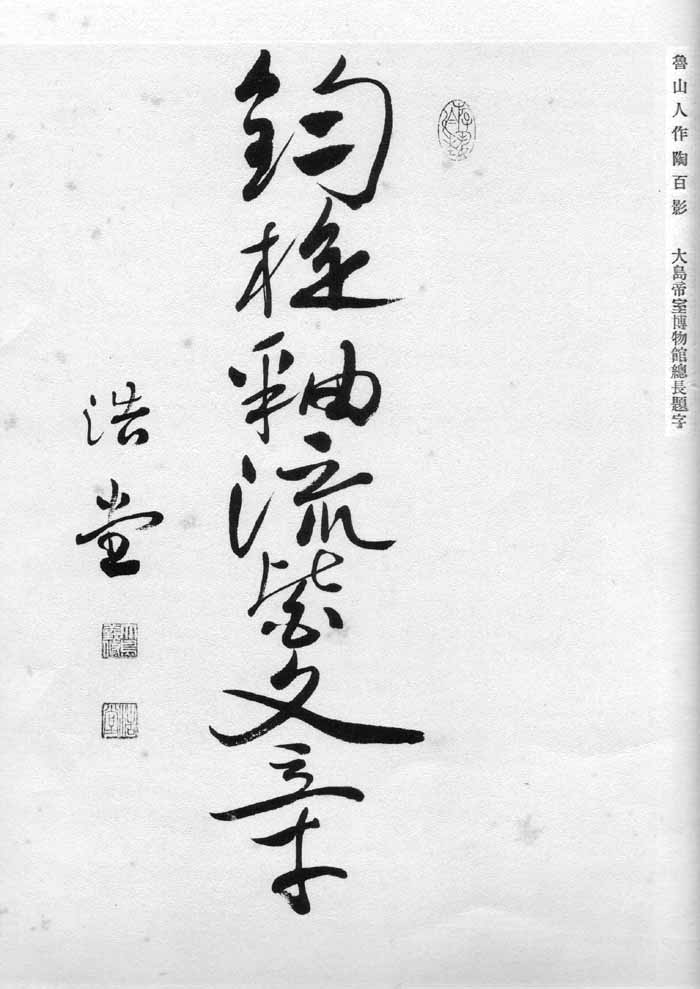 魯山人作陶百影 大島帝室博物館總長題字
鈞釉流紫文章
浩堂